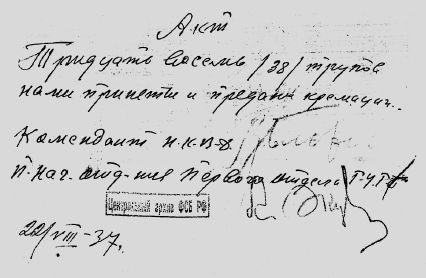 Акт
Тридцать восемь /38/ трупов
нами приняти и предани кремации.
Комендант Н.К.В-Д.
П. нач. отд-ния Первого отдела Г-У.Г-Б
Центральный архив ФСБ РФ
22/VIII-37.